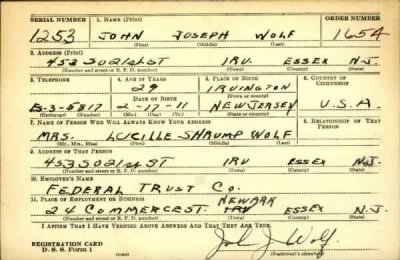 SERIAL NUMBER 1. NAME (Print) ORDER NUMBER
1253 JOHN JOSEPH WOLF 1654
(First) (Middle) (Last)
2. ADDRESS (Print)
453 SO 21 ST IRV. ESSEX N.J.
(Number and street or R. F. D. number) (Town) (County) (State)
3. TELEPHONE 4. AGE IN YEARS 5. PLACE OF BIRTH 6. COUNTRY OF CITIZENSHIP
29 IRVINGTON
DATE OF BIRTH (Town or county)
2 17 11 NEW JERSEY U.S.A.
(Mo.) (Day) (Yr.) (State or country)
7. NAME OF PERSON WHO WILL ALWAYS KNOW YOUR ADDRESS 8. RELATIONSHIP OF THAT PERSON
MRS. LUCILLE SHRUMP WOLF
(Mr., Mrs., Miss) (First) (Middle) (Last)
9. ADDRESS OF THAT PERSON
453 SO 21 ST IRV ESSEX N.J.
(Number and street or R. F. D. number) (Town) (County) (State)
10. EMPLOYER'S NAME
FEDERAL TRUST CO.
11. PLACE OF EMPLOYMENT OR BUSINESS NEWARK
24 COMMERCE ST. IRV ESSEX N.J.
(Number and street or R. F. D. number) (Town) (County) (State)
I AFFIRM THAT I HAVE VERIFIED ABOVE ANSWERS AND THAT THEY ARE TRUE.
REGISTRATION CARD
D. S. S. Form 1 John J Wolf
(Registrant's signature)